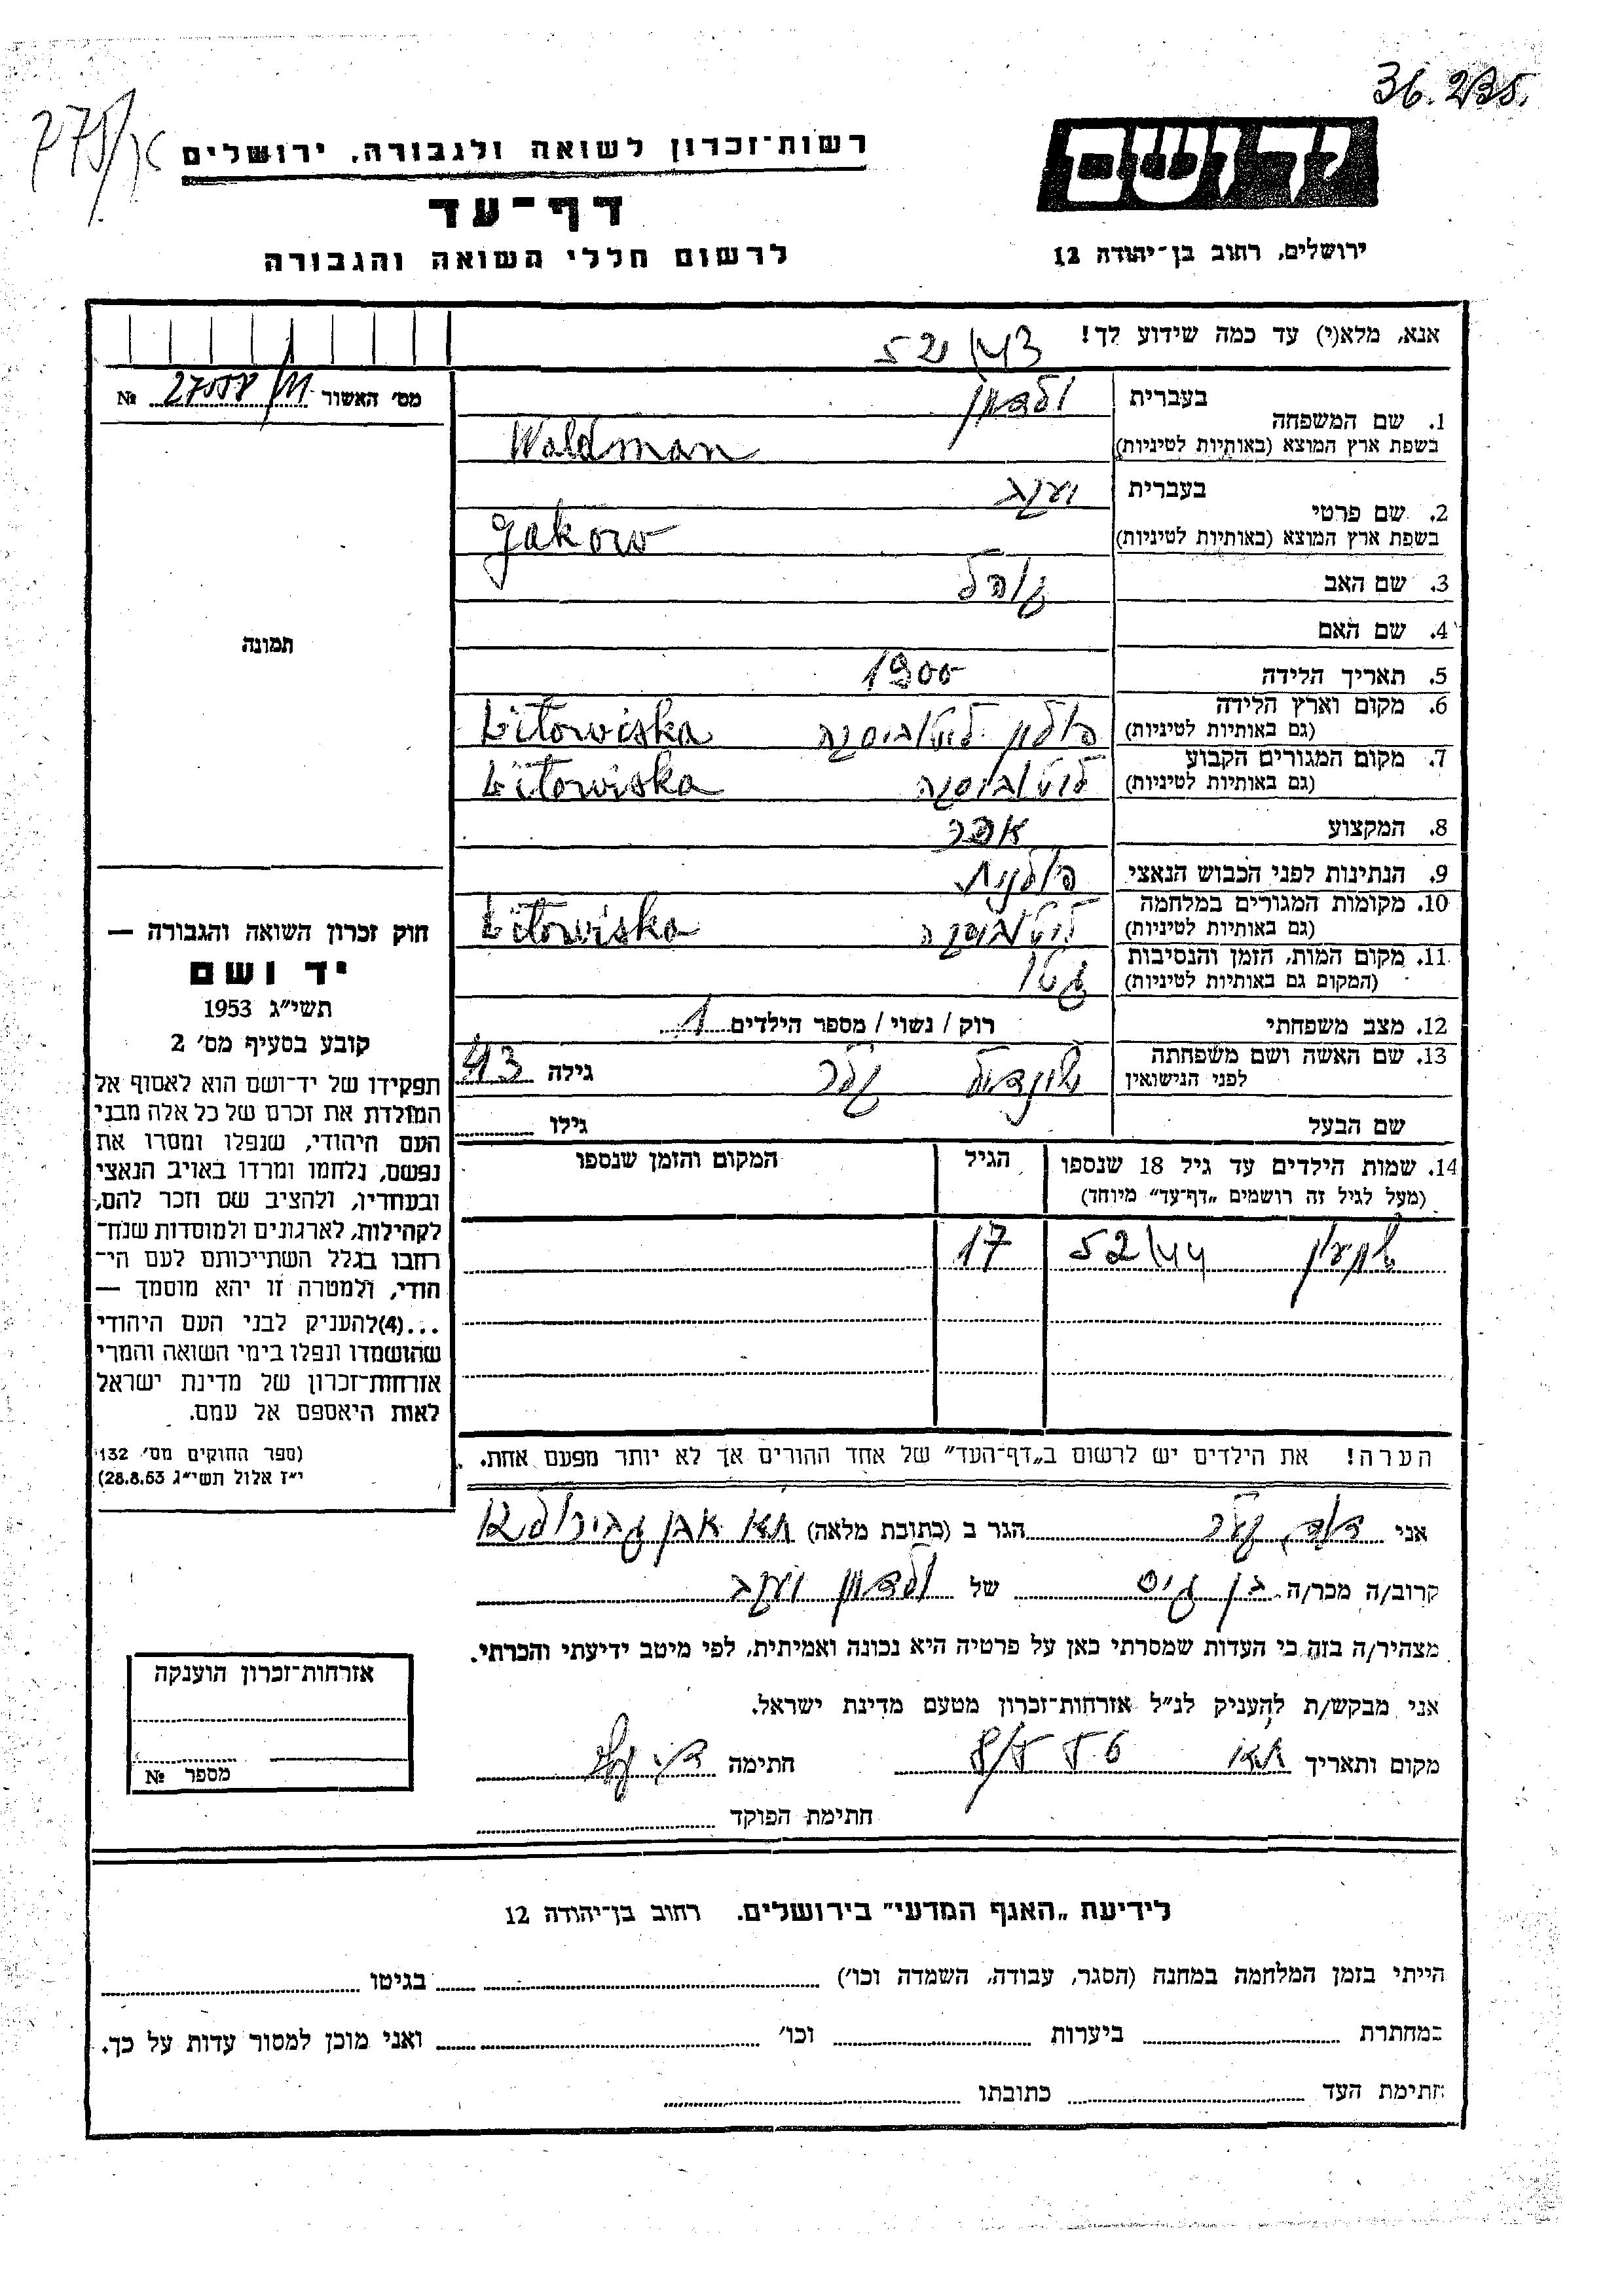 36.235.
275/אר
יד ושם
רשות־זכרון לשואה ולגבורה, ירושלים
דף־עד
ירושלים, רחוב בן־יהודה 12
לרשום חללי השואה והגבורה
אנא, מלא(י) עד כמה שידוע לך! 52/43
מס׳ האשור 27058/111 №
1. שם המשפחה
בעברית ולדמן
בשפת ארץ המוצא (באותיות לטיניות) Waldman
2. שם פרטי
בעברית יעקב
בשפת ארץ המוצא (באותיות לטיניות) Jakow
3. שם האב
4. שם האם
5. תאריך הלידה 1900
6. מקום וארץ הלידה
(גם באותיות לטיניות) פולין ליטוביסקה Litowiska
7. מקום המגורים הקבוע
(גם באותיות לטיניות) ליטוביסקה Litowiska
8. המקצוע
9. הנתינות לפני הכבוש הנאצי פולנית
10. מקומות המגורים במלחמה
(גם באותיות לטיניות) ליטוביסקה Litowiska
11. מקום המות, הזמן והנסיבות
(המקום גם באותיות לטיניות) גטו
12. מצב משפחתי רוק / נשוי / מספר הילדים 1
13. שם האשה ושם משפחתה
לפני הנישואין שינדיל גילה 43
שם הבעל גילו
14. שמות הילדים עד גיל 18 שנספו הגיל המקום והזמן שנספו
(מעל לגיל זה רושמים „דף־עד״ מיוחד)
שמעון 52/44 17
הערה! את הילדים יש לרשום ב„דף־העד״ של אחד ההורים אך לא יותר מפעם אחת.
תמונה
חוק זכרון השואה והגבורה —
יד ושם
תשי״ג 1953
קובע בסעיף מס׳ 2
תפקידו של יד־ושם הוא לאסוף אל
המולדת את זכרם של כל אלה מבני
העם היהודי, שנפלו ומסרו את
נפשם, נלחמו ומרדו באויב הנאצי
ובעוזריו, ולהציב שם וזכר להם,
לקהילות, לארגונים ולמוסדות שנח־
רחבו בגלל השתייכותם לעם הי־
הודי, ולמטרה זו יהא מוסמך —
...(4)להעניק לבני העם היהודי
שהושמדו ונפלו בימי השואה והמרי
אזרחות־זכרון של מדינת ישראל
לאות היאספם אל עמם.
(ספר החוקים מס׳ 132
י״ז אלול תשי״ג 28.8.53)
אני דוד הגר ב (כתובת מלאה) ת״א אבן גבירול
קרוב/ה מכר/ה בן גיס של ולדמן יעקב
מצהיר/ה בזה כי העדות שמסרתי כאן על פרטיה היא נכונה ואמיתית, לפי מיטב ידיעתי והכרתי.
אני מבקש/ת להעניק לנ״ל אזרחות־זכרון מטעם מדינת ישראל.
מקום ותאריך ת״א חתימה
חתימת הפוקד
אזרחות־זכרון הוענקה
מספר №
לידיעת „האגף המדעי״ בירושלים. רחוב בן־יהודה 12
הייתי בזמן המלחמה במחנה (הסגר, עבודה, השמדה וכו׳) בגיטו
במחתרת ביערות וכו׳ ואני מוכן למסור עדות על כך.
חתימת העד כתובתו